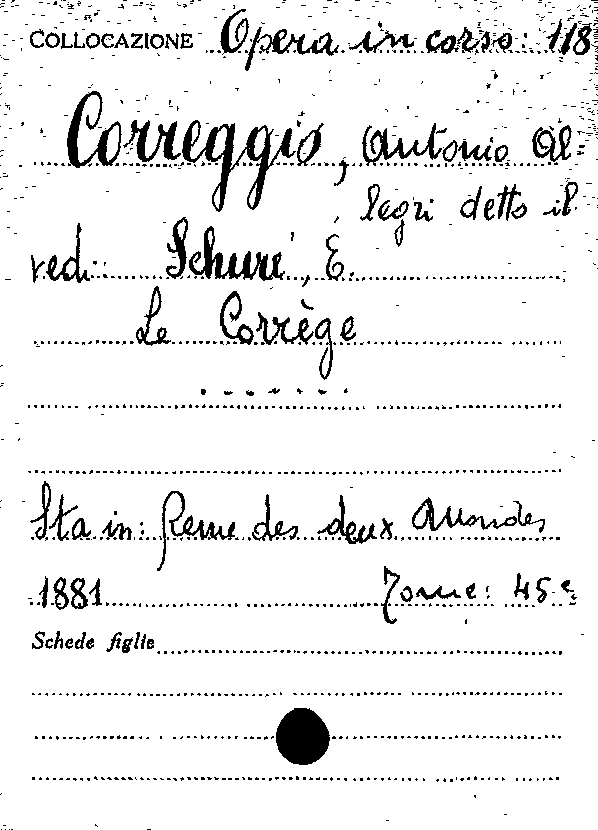 COLLOCAZIONE Opera in corso: 118
Correggio, Antonio Al-
legri detto il
vedi: Schuré, E.
Le Corrège
.......
Sta in: Revue des deux Mondes
1881 Tome: 45e
Schede figlie